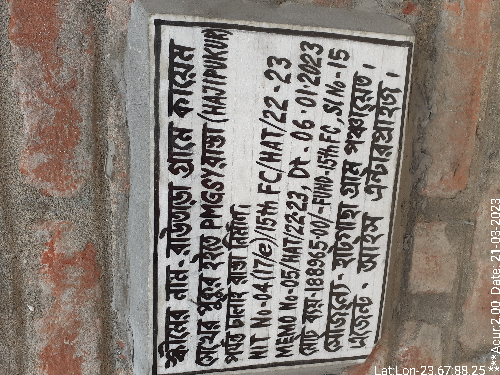 স্কীমের নাম-রাউতাড়া গ্রামে কায়েম
সেখের পুকুর হইতে PMGSY রাস্তা (HAJIPUKUR)
পর্যন্ত ঢালাই রাস্তা নির্মাণ।
NIT No-04(17/e)/15th FC/HAT/22-23
MEMO No-05/HAT/22-23, Dt-06.01.2023
মোট ব্যয়-188965.00/-FUND-15th FC, Sl No-15
সৌজন্যে- হাটগাছা গ্রাম পঞ্চায়েত।
এজেন্ট- আইস এন্টারপ্রাইজ।
Lat Lon-23.67:88.25
***Acur:2.00 Date: 21-03-2023